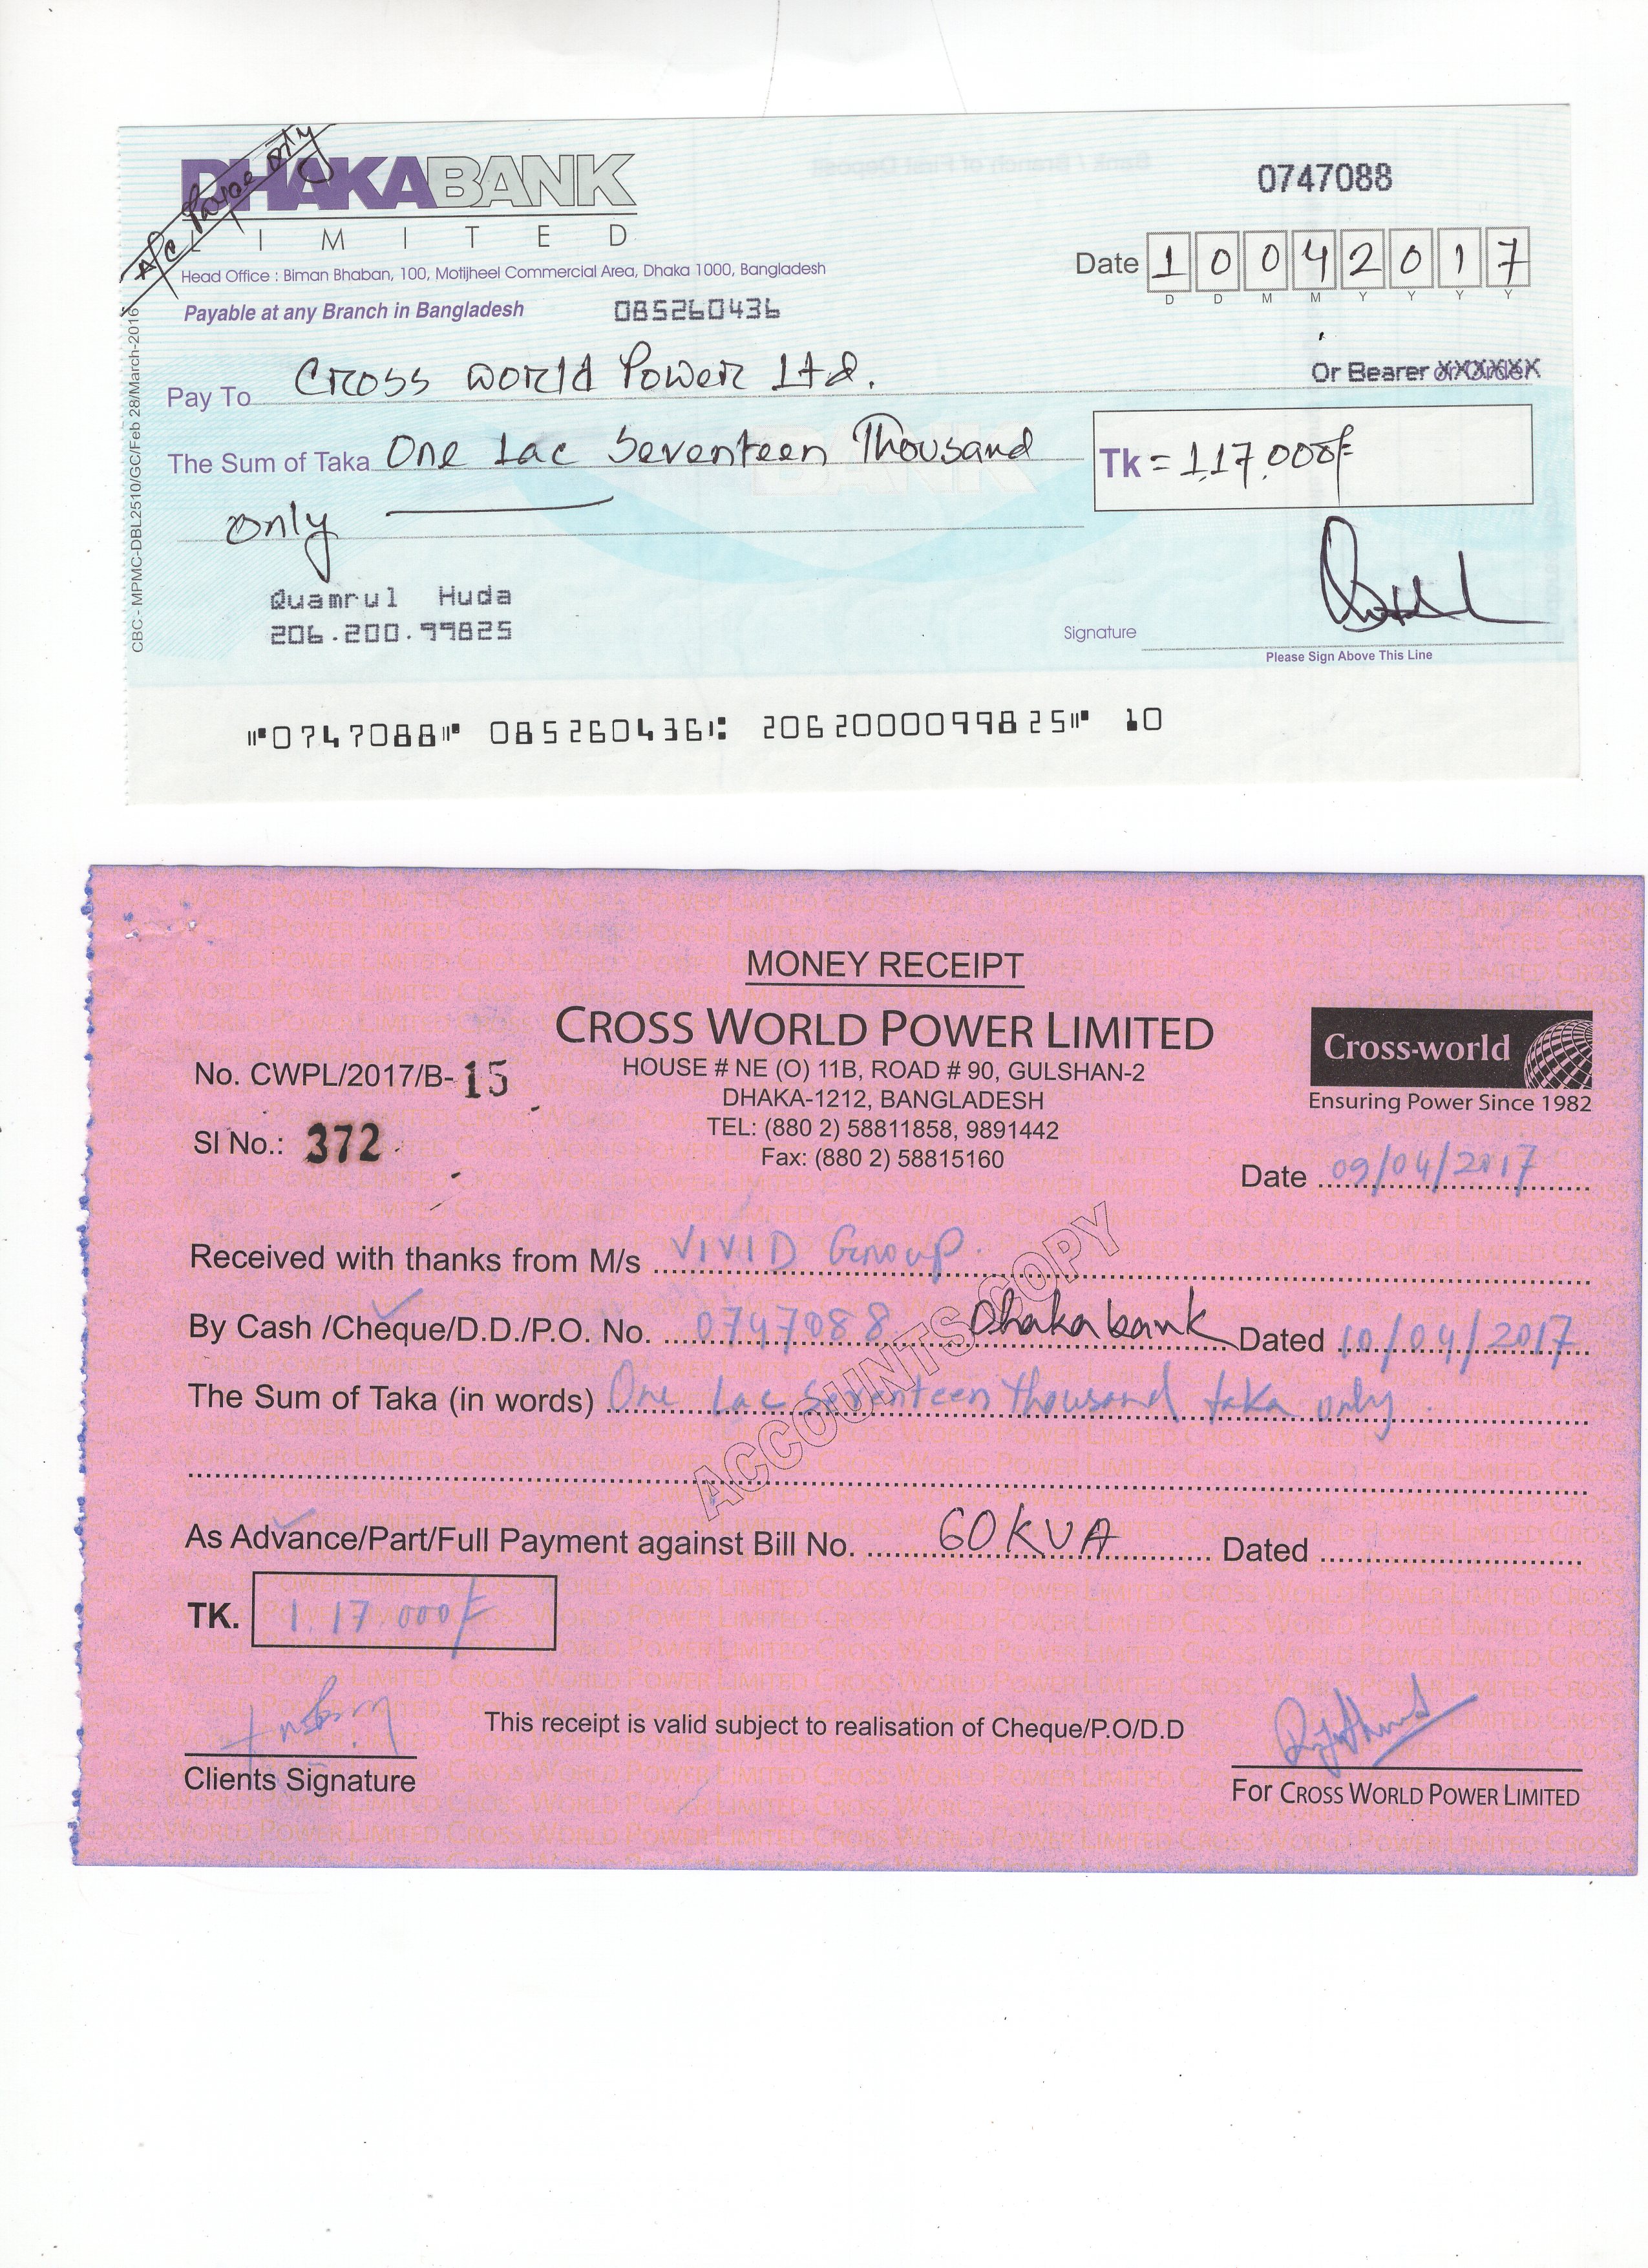 A/C Payee Only
DHAKABANK
LIMITED
0747088
Head Office : Biman Bhaban, 100, Motijheel Commercial Area, Dhaka 1000, Bangladesh
Date 10042017
D D M M Y Y Y Y
Payable at any Branch in Bangladesh 085260436
CBC - MPMC-DBL2510/GC/Feb 28/March-2016
Pay To Cross World Power Ltd. Or Bearer
The Sum of Taka One Lac Seventeen Thousand Tk = 1,17,000/=
only
Quamrul Huda
206.200.99825
Signature
Please Sign Above This Line
⑈0747088⑈ 085260436⑆ 2062000099825⑈ 10
MONEY RECEIPT
CROSS WORLD POWER LIMITED
Cross-world
Ensuring Power Since 1982
No. CWPL/2017/B-15
HOUSE # NE (O) 11B, ROAD # 90, GULSHAN-2
DHAKA-1212, BANGLADESH
Sl No.: 372
TEL: (880 2) 58811858, 9891442
Fax: (880 2) 58815160
Date 09/04/2017
Received with thanks from M/s VIVID Group.
By Cash /Cheque/D.D./P.O. No. 0747088 Dhaka bank Dated 10/04/2017
The Sum of Taka (in words) One Lac Seventeen Thousand taka only.
ACCOUNTS COPY
As Advance/Part/Full Payment against Bill No. 60 KVA Dated
TK. 1,17,000/=
This receipt is valid subject to realisation of Cheque/P.O/D.D
Clients Signature
For CROSS WORLD POWER LIMITED